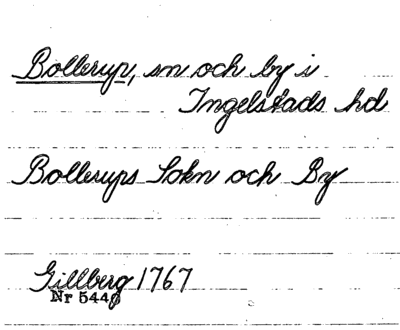 Bollerup, sn och by i
Ingelstads hd
Bollerups Sokn och By
Gillberg 1767
Nr 5440